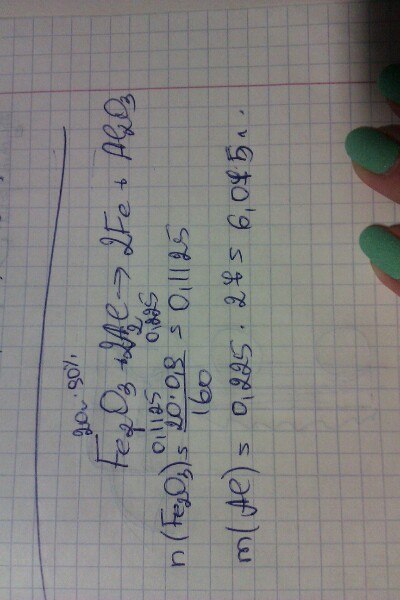 20г. 90%
Fe₂O₃ + 2Al → 2Fe + Al₂O₃
0,1125 2 0,225
n(Fe₂O₃) = 20·0,9 / 160 = 0,1125
m(Al) = 0,225 · 27 = 6,075г.